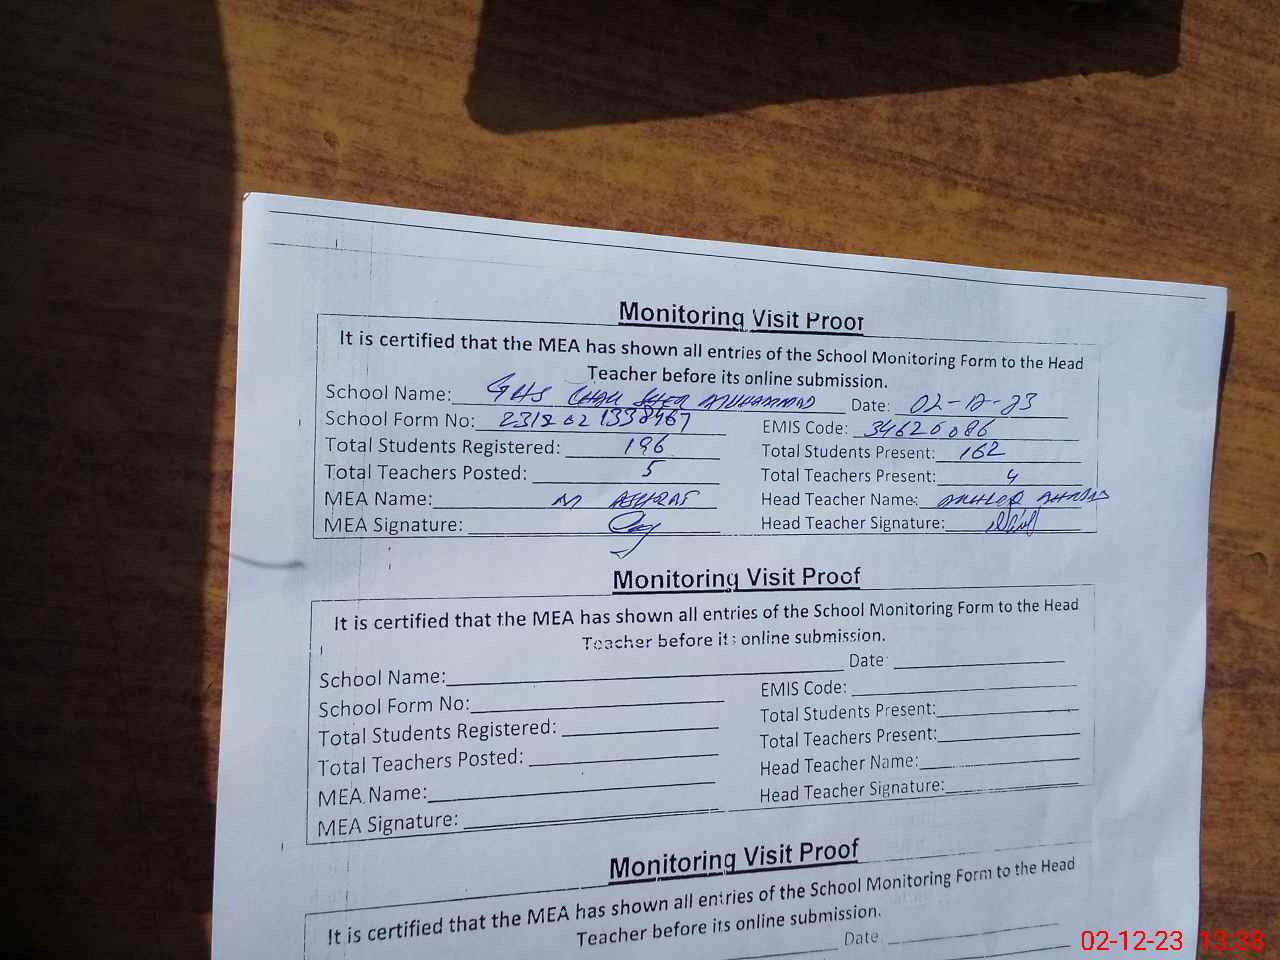 Monitoring Visit Proof
It is certified that the MEA has shown all entries of the School Monitoring Form to the Head
Teacher before its online submission.
School Name: GHS CHAH SHER MUHAMMAD Date: 02-12-23
School Form No: EMIS Code: 34620086
Total Students Registered: 196 Total Students Present: 162
Total Teachers Posted: 5 Total Teachers Present: 4
MEA Name: M ASHRAF Head Teacher Name:
MEA Signature: Head Teacher Signature:
Monitoring Visit Proof
It is certified that the MEA has shown all entries of the School Monitoring Form to the Head
Teacher before its online submission.
School Name: Date:
School Form No: EMIS Code:
Total Students Registered: Total Students Present:
Total Teachers Posted: Total Teachers Present:
MEA Name: Head Teacher Name:
MEA Signature: Head Teacher Signature:
Monitoring Visit Proof
It is certified that the MEA has shown all entries of the School Monitoring Form to the Head
Teacher before its online submission.
Date
02-12-23 13:38